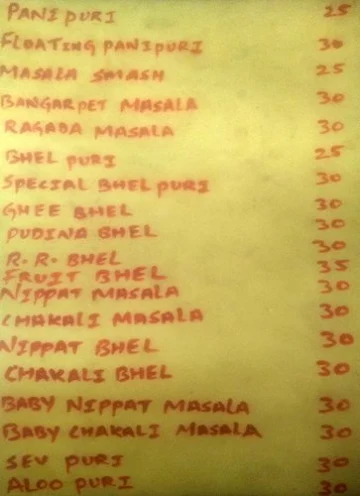 PANI PURI 25
FLOATING PANIPURI 30
MASALA SMASH 25
BANGARPET MASALA 30
RAGADA MASALA 30
BHEL PURI 25
SPECIAL BHEL PURI 30
GHEE BHEL 30
PUDINA BHEL 30
R.R. BHEL 30
FRUIT BHEL 35
NIPPAT MASALA 30
CHAKALI MASALA 30
NIPPAT BHEL 30
CHAKALI BHEL 30
BABY NIPPAT MASALA 30
BABY CHAKALI MASALA 30
SEV PURI 30
ALOO PURI 30